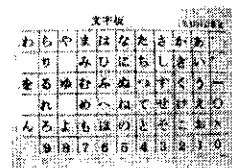 文字板
わ ら や ま は な た さ か あ
り み ひ に ち し き い
を る ゆ む ふ ぬ つ す く う ー
れ め へ ね て せ け え 〇
ん ろ よ も ほ の と そ こ お
9 8 7 6 5 4 3 2 1 0